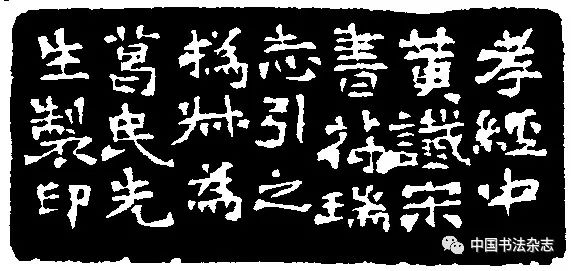 孝經中
黃讖宋
書符瑞
志引之
撝叔為
葛民先
生製印
中国书法杂志